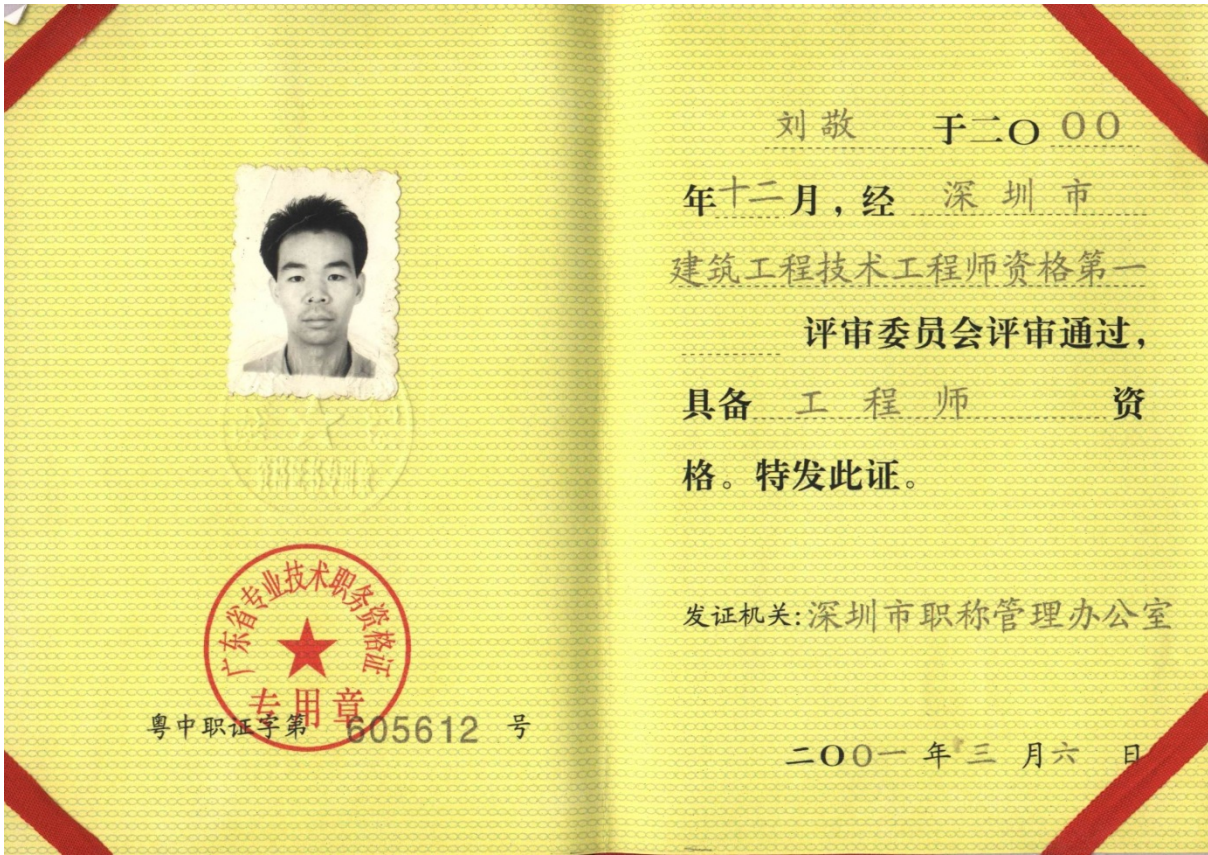 广东省专业技术职务资格证
专用章
粤中职证字第 605612 号
刘敬 于二〇〇〇
年十二月，经 深圳市
建筑工程技术工程师资格第一
评审委员会评审通过，
具备 工程师 资
格。特发此证。
发证机关：深圳市职称管理办公室
二〇〇一年三月六日